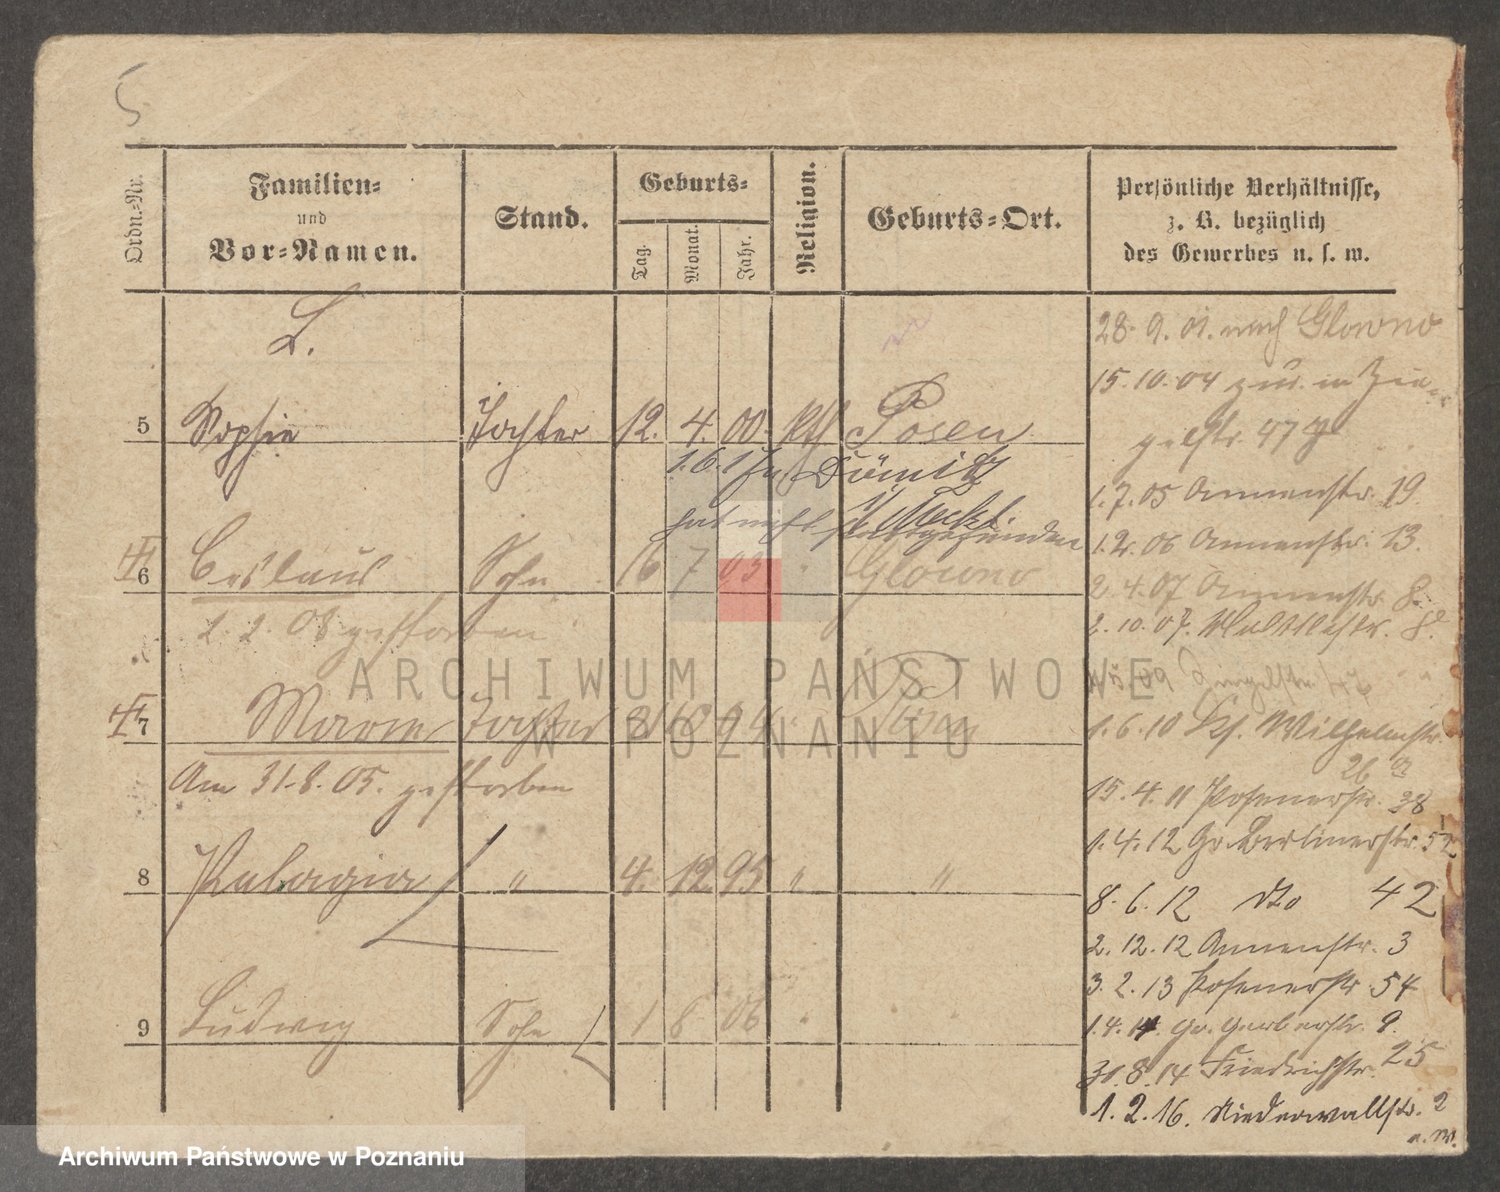 5
Ordn.-Nr.
Familien-
und
Vor-Namen.
Stand.
Geburts-
Tag.
Monat.
Jahr.
Religion.
Geburts-Ort.
Persönliche Verhältnisse,
z. B. bezüglich
des Gewerbes u. s. w.
L.
28. 9. 01. nach Glowno
15. 10. 04 zur. in
5 Sophie Tochter 12. 4. 00 kth Posen
47
1. 6. 17 Dömitz
hat nicht stattgefunden
1. 7. 05 Annenstr. 19
1. 2. 06 Annenstr. 13.
6 Ceslaus Sohn 16 7 03 " Glowno
2. 4. 07 Annenstr. 8.
2. 2. 08 gestorben
2. 10. 07. Wallischstr. 8.
7 Marie Tochter 94
1. 6. 10 Wilhelmstr.
26
Am 31. 8. 05. gestorben
15. 4. 11 Posenerstr. 38
1. 4. 12 Gr. Berlinerstr. 52
8 Pelagia " 4. 12 95 " "
8. 6. 12 dto 42
2. 12. 12 Annenstr. 3
3. 2. 13 Posenerstr 54
9 Ludwig Sohn 1 8 06 " "
1. 4. 14 Gr. Gerberstr. 9.
30. 8. 14 Friedrichstr. 25
1. 2. 16. Niederwallstr. 2
ARCHIWUM PAŃSTWOWE
W POZNANIU
Archiwum Państwowe w Poznaniu